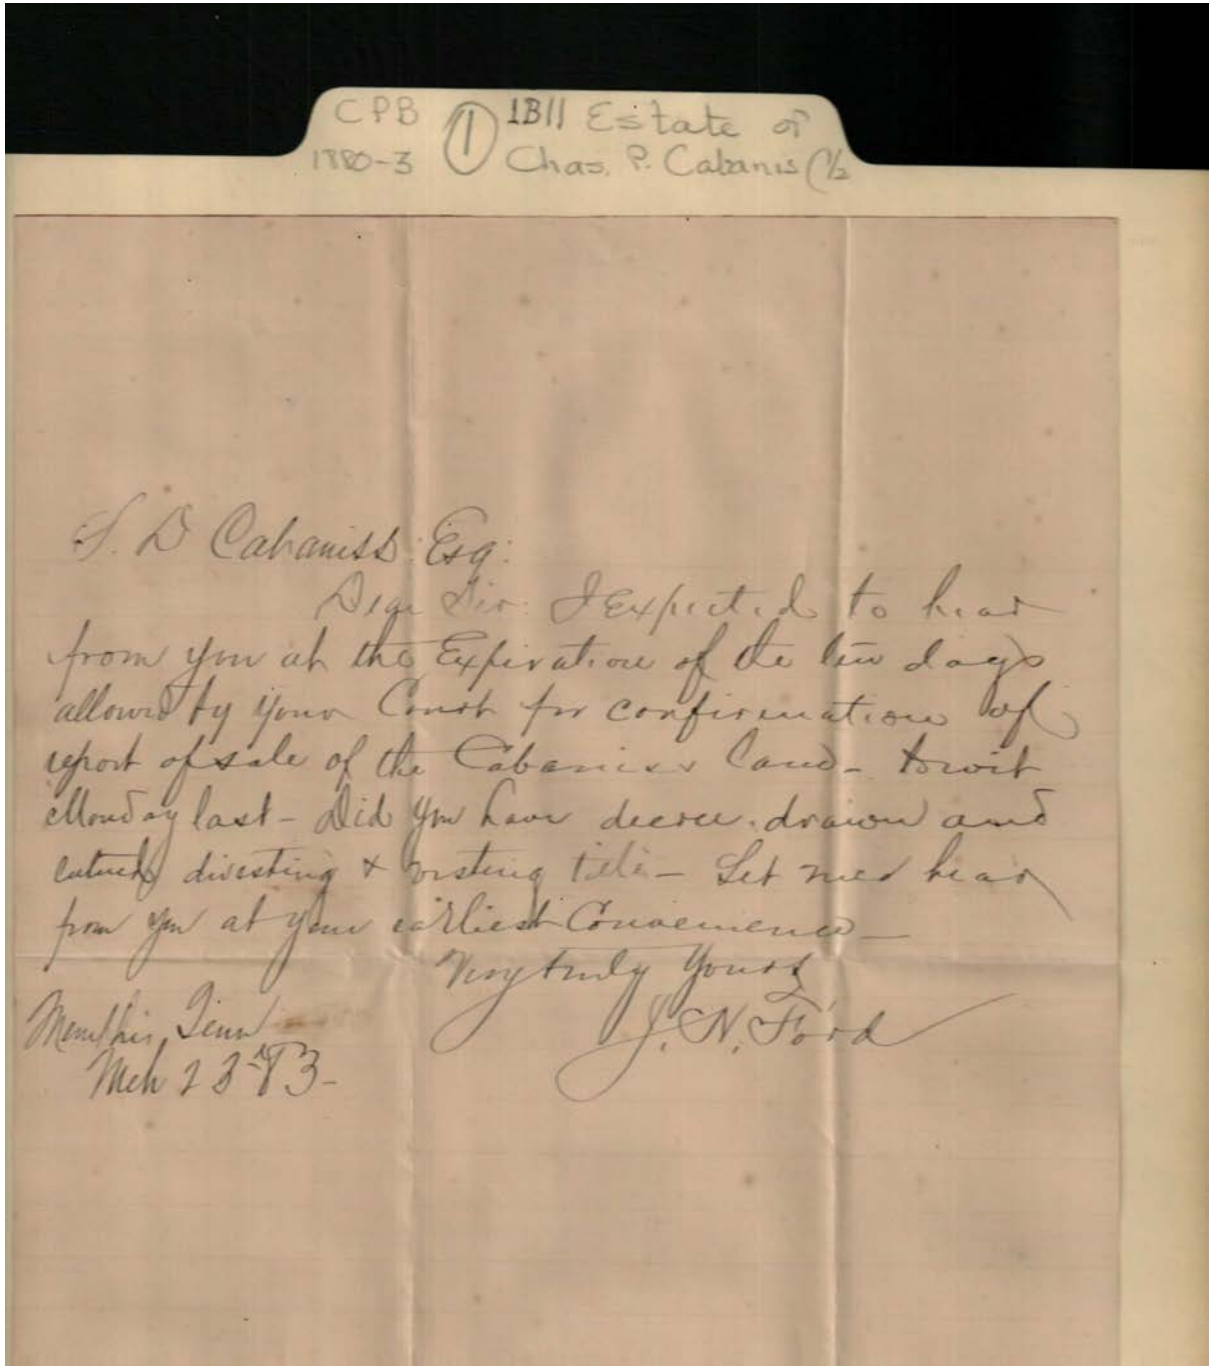 CPB ① 1B11 Estate of
1880-3 Chas. P. Cabanis (1/2
S. D Cabaniss Esq:
Dear Sir: I Expected to hear
from you at the Expiration of the ten days
allowed by your Court for confirmation of
report of sale of the Cabaniss Land - towit
Monday last - Did you have decree drawn and
entered divesting & vesting title - Let me hear
from you at your earliest Convenience -
Very truly Yours
J. N. Ford
Memphis, Tenn
Mch 23rd 83 -